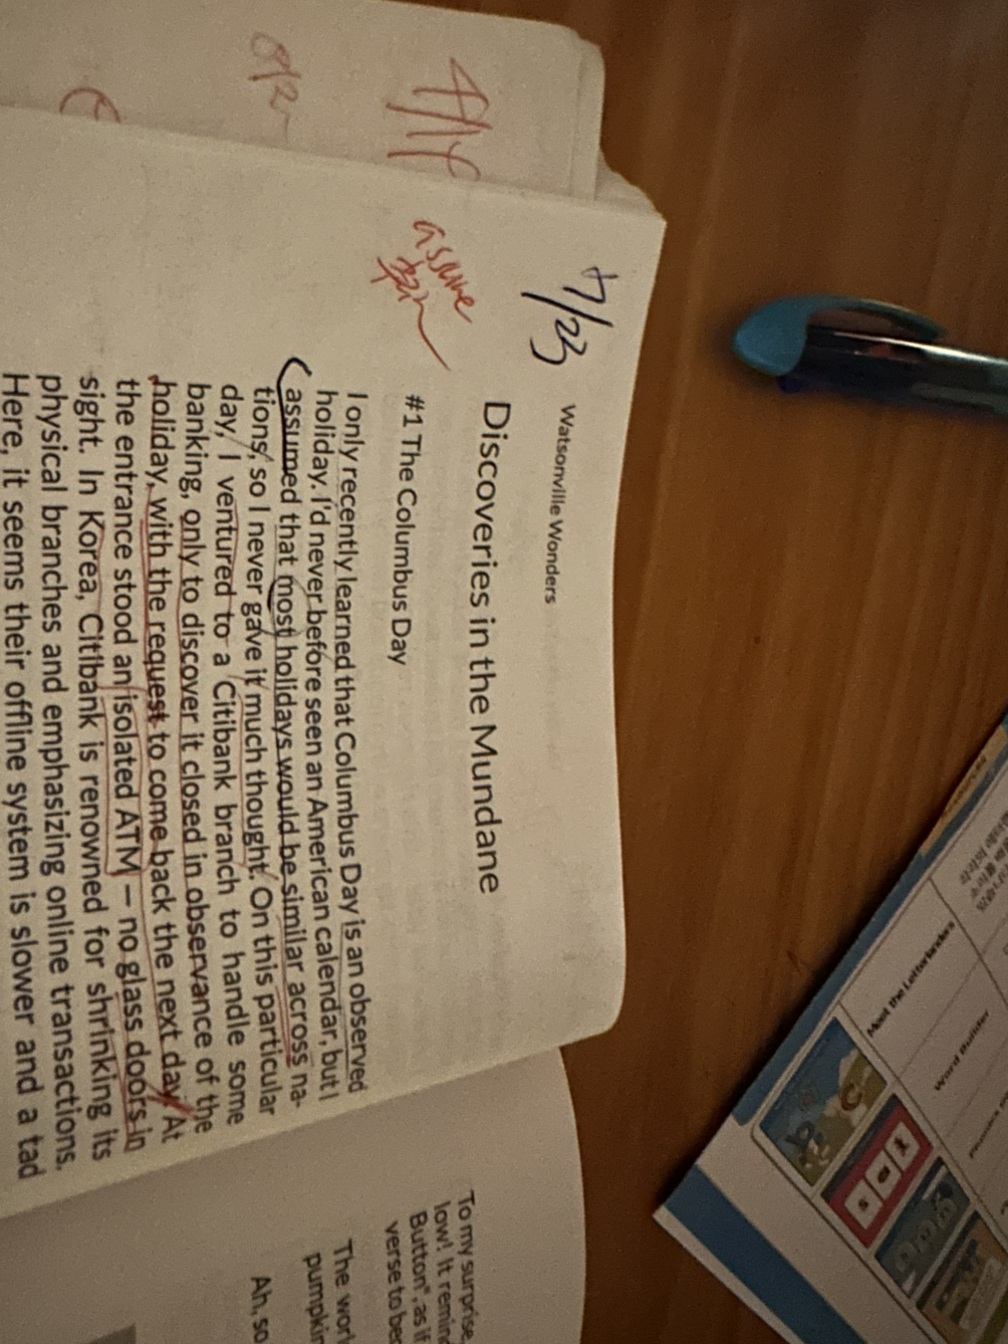 4/23
assume
Watsonville Wonders
Discoveries in the Mundane
#1 The Columbus Day
I only recently learned that Columbus Day is an observed
holiday. I'd never before seen an American calendar, but I
assumed that most holidays would be similar across na-
tions, so I never gave it much thought. On this particular
day, I ventured to a Citibank branch to handle some
banking, only to discover it closed in observance of the
holiday, with the request to come back the next day. At
the entrance stood an isolated ATM – no glass doors in
sight. In Korea, Citibank is renowned for shrinking its
physical branches and emphasizing online transactions.
Here, it seems their offline system is slower and a tad
To my surprise,
low! It remin
Button", as if
verse to be
The worl
pumpkin
Ah, so
Meet the Letterlanders
Word Builder